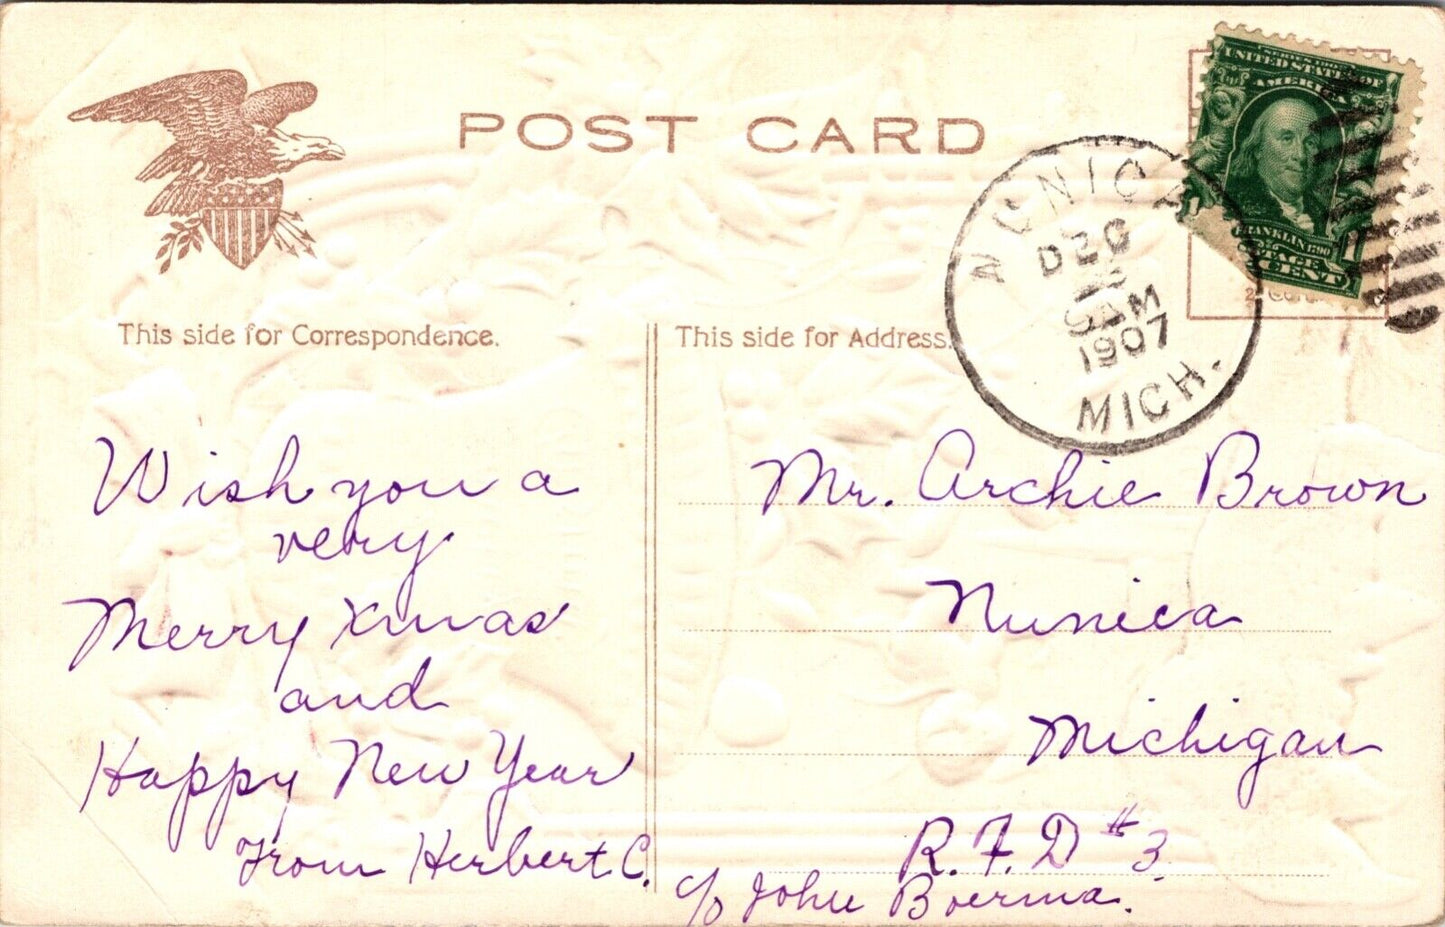 POST CARD
SERIES 1902
UNITED STATES OF
AMERICA
FRANKLIN 1790
1 1
CENT
NUNICA
DEC
AM
1907
MICH.
This side for Correspondence.
This side for Address.
Wish you a
very
Merry Xmas
and
Happy New Year
From Herbert. C.
Mr. Archie Brown
Nunica
Michigan
R.F.D #3.
c/o John Boerma.